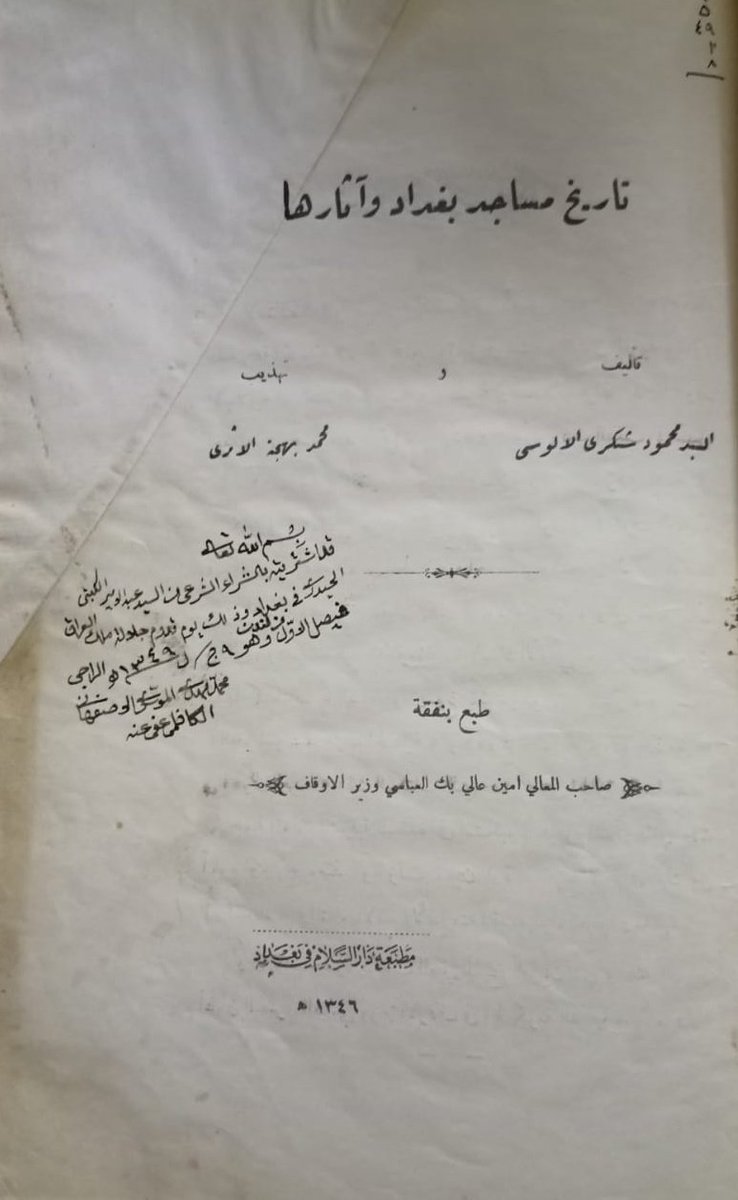 ٥
٤٩
٢
٨
تاريخ مساجد بغداد وآثارها
تأليف و تهذيب
السيد محمود شكرى الالوسى محمد بهجة الاثرى
بسم الله تعالى
قد اشتريته بالشراء الشرعي من السيد عبد الامير الكتبي
الحيدري في بغداد وذلك يوم قدوم جلالة ملك العراق
فيصل الاول من لندن وهو ٩ ج ١٣٤٩ الراجي
محمد مهدي الموسوي الاصفهاني
الكاظمي عفي عنه
طبع بنفقة
صاحب المعالي امين عالي بك العباسي وزير الاوقاف
مطبعة دار السلام في بغداد
١٣٤٦ ه